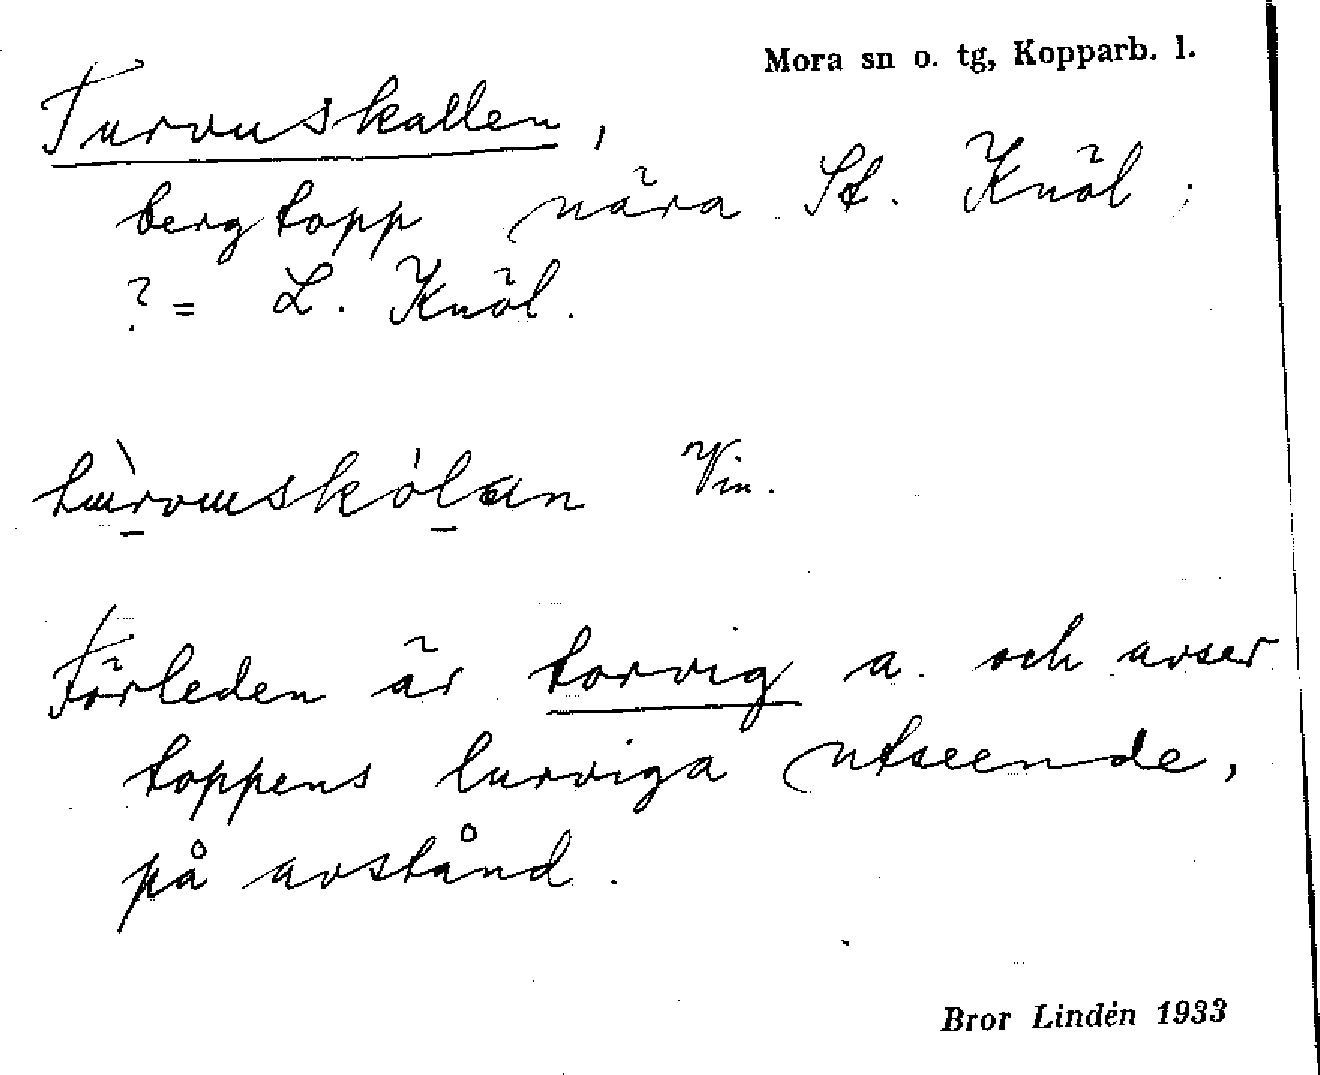 Mora sn o. tg, Kopparb. l.
Turvuskallen,
bergtopp nära St. Knöl;
? = L. Knöl.
Vin.
Förleden är torvig a. och avser
toppens lurviga utseende,
på avstånd.
Bror Lindén 1933